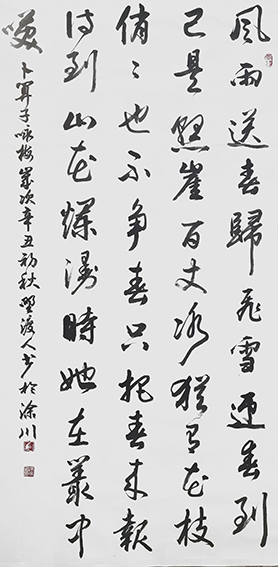 風雨送春歸飛雪迎春到
已是懸崖百丈冰猶有花枝
俏俏也不争春只把春來報
待到山花爛漫時她在叢中
咲
卜算子咏梅歲次辛丑初秋野渡人书於滁川